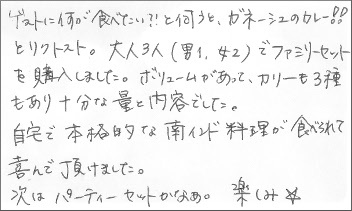 ゲストに何が食べたい?!と伺うと、ガネーシュのカレー!!
とリクエスト。大人3人(男1,女2)でファミリーセット
を購入しました。ボリュームがあって、カリーも3種
もあり十分な量と内容でした。
自宅で本格的な南インド料理が食べられて
喜んで頂けました。
次はパーティーセットかなぁ。楽しみ☆